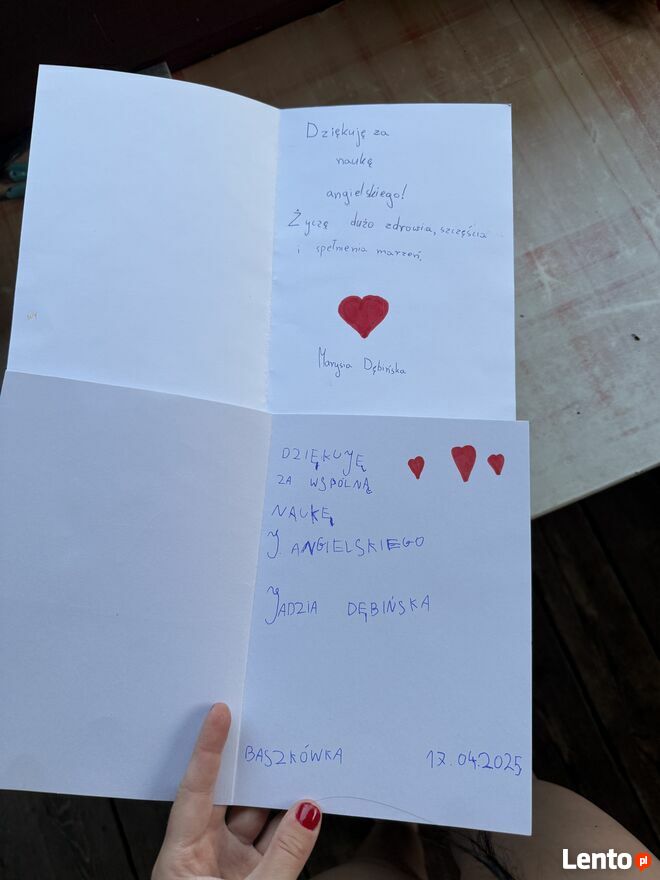 Dziękuję za
naukę
angielskiego!
Życzę dużo zdrowia, szczęścia
i spełnienia marzeń.
Marysia Dębińska
DZIĘKUJĘ
ZA WSPÓLNĄ
NAUKĘ
J. ANGIELSKIEGO
JADZIA DĘBIŃSKA
BASZKÓWKA 17.04.2025
Lento.pl